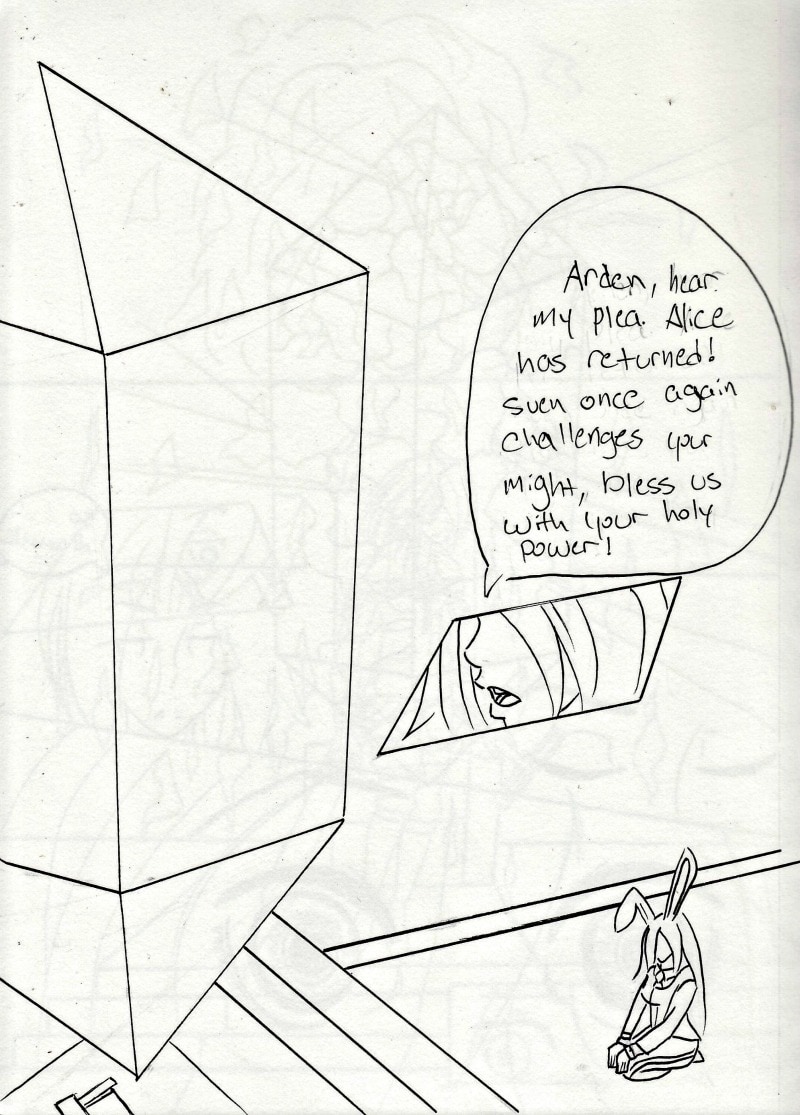 Arden, hear
my plea. Alice
has returned!
Suen once again
challenges your
might, bless us
with your holy
power!